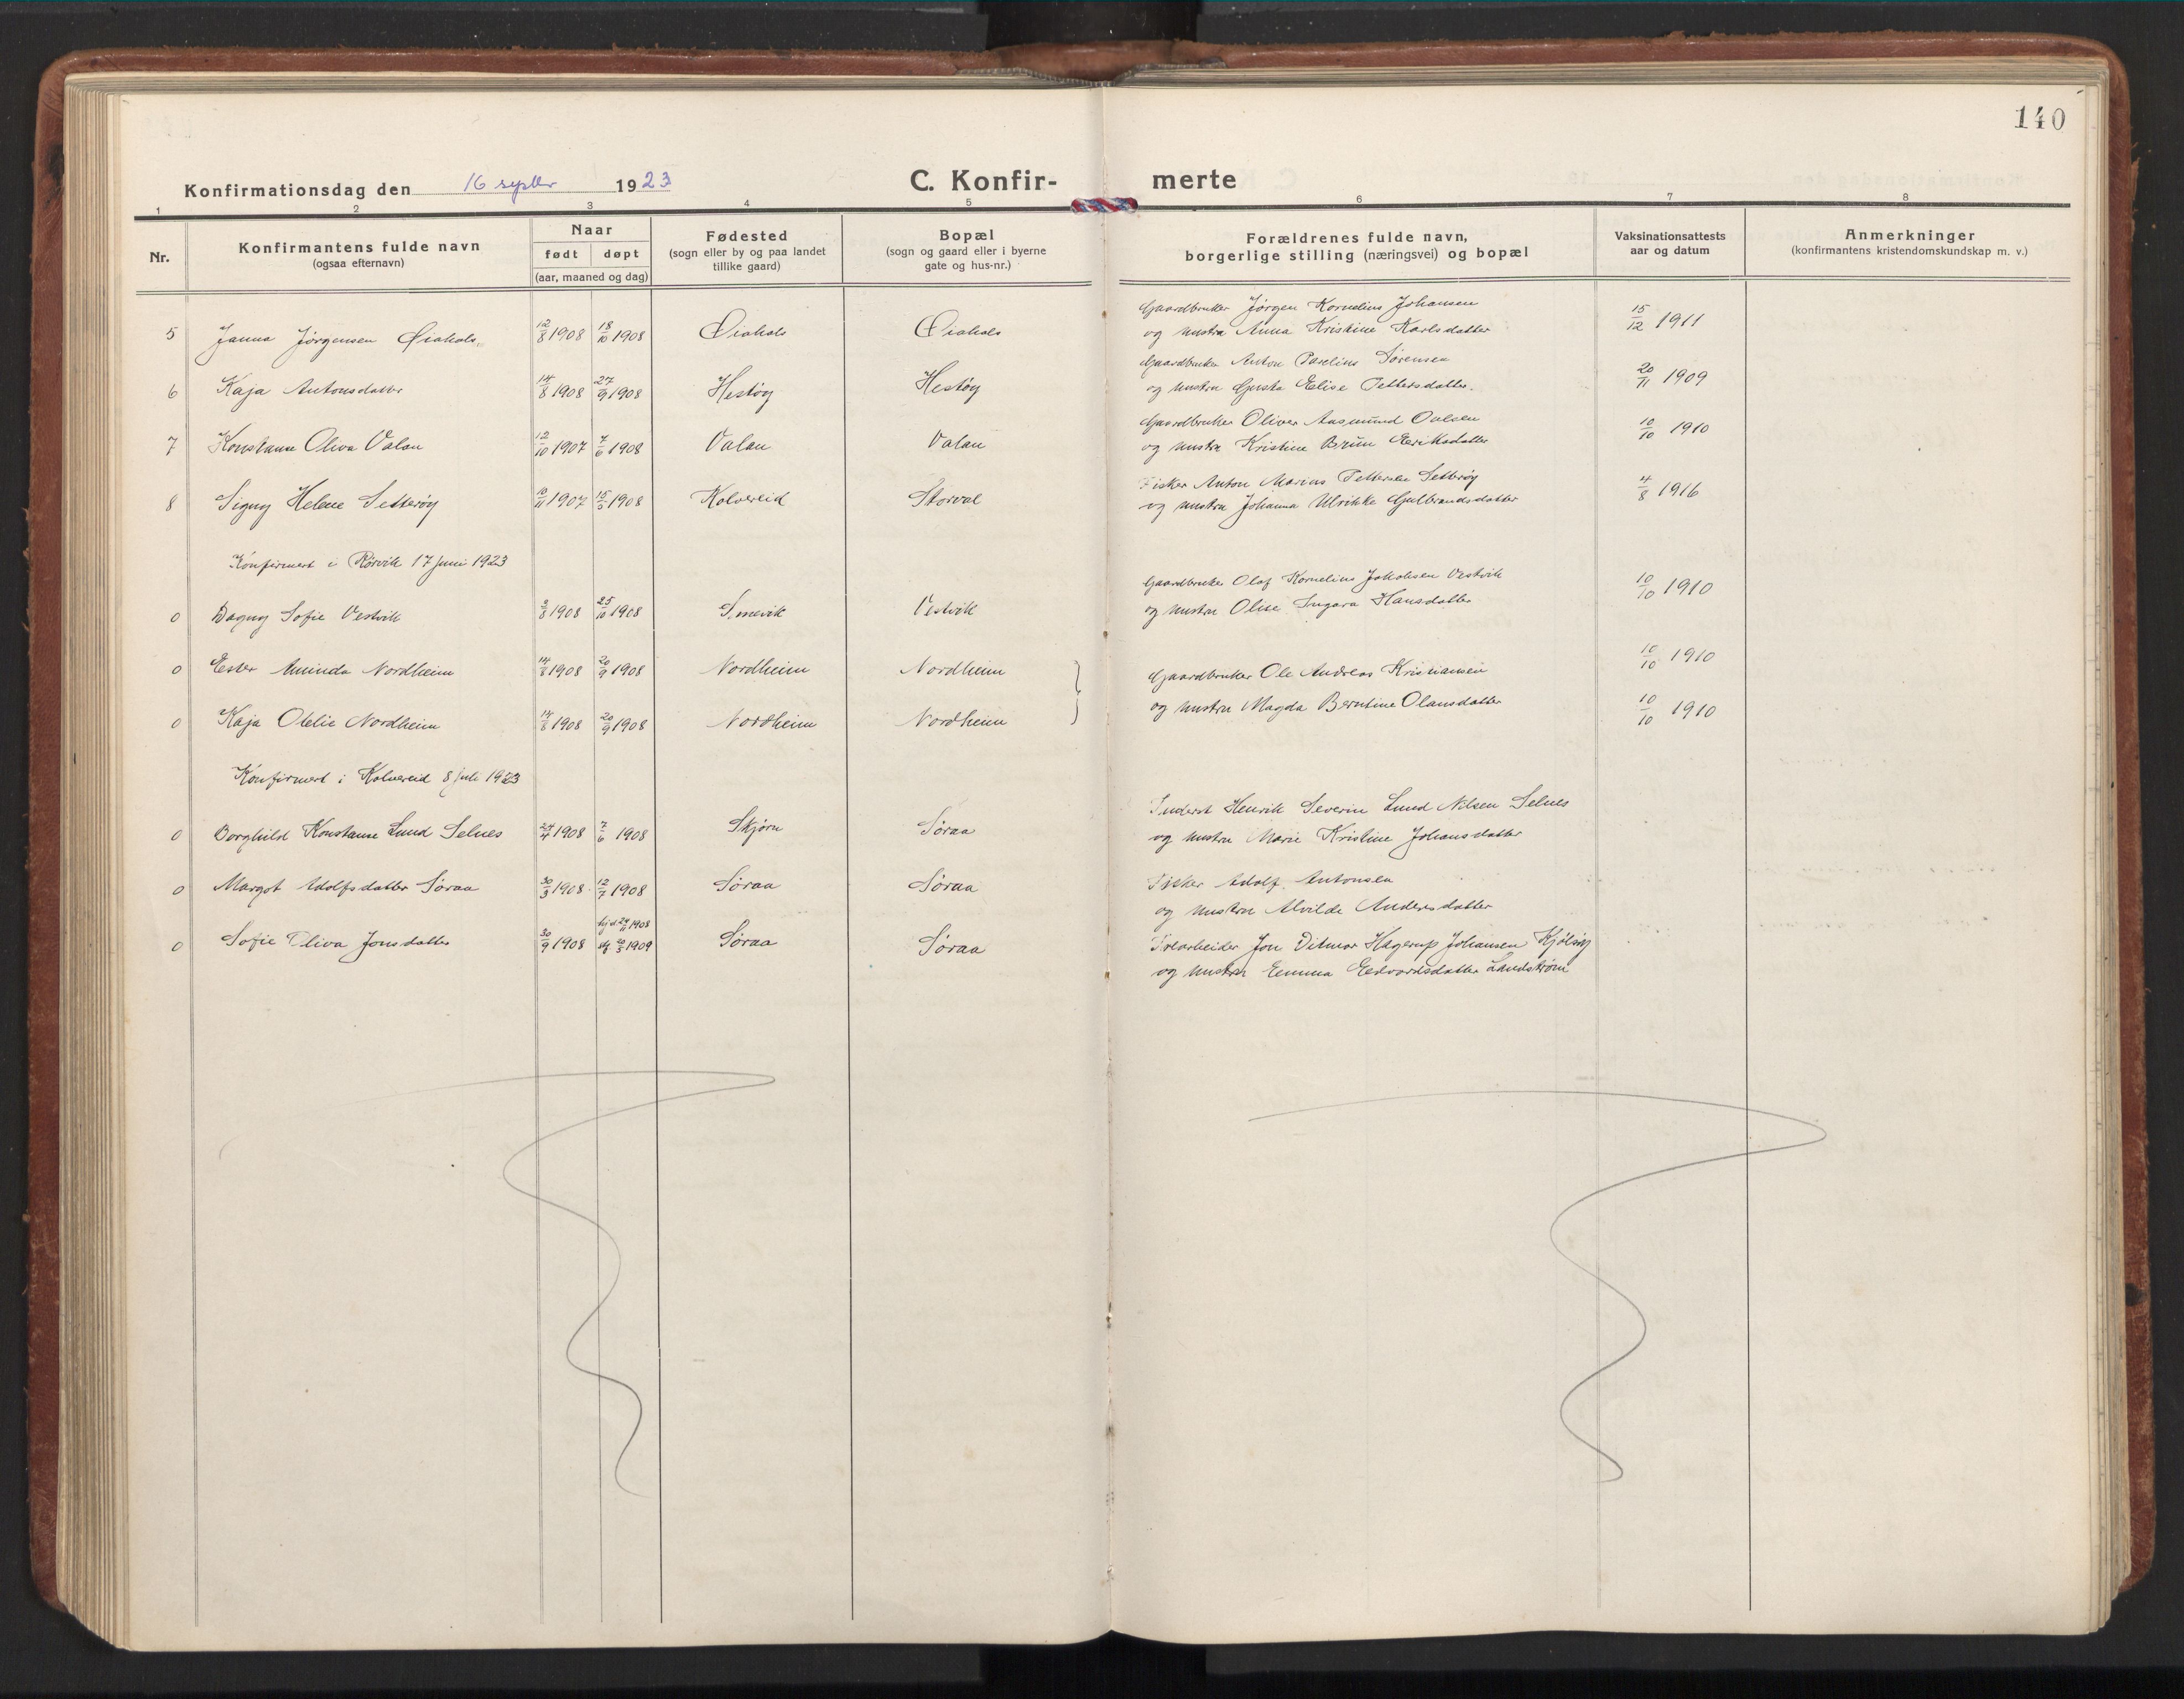 140
Konfirmationsdag den 16 septbr 1923
C. Konfirmerte
1 2 3 4 5 6 7 8
Nr.
Konfirmantens fulde navn
(ogsaa efternavn)
Naar
født døpt
(aar, maaned og dag)
Fødested
(sogn eller by og paa landet
tillike gaard)
Bopæl
(sogn og gaard eller i byerne
gate og hus-nr.)
Forældrenes fulde navn,
borgerlige stilling (næringsvei) og bopæl
Vaksinationsattests
aar og datum
Anmerkninger
(konfirmantens kristendomskundskap m. v.)
Gaardbruker Jørgen Kornelius Johansen
5 Janna Jørgensen Øiahals 12/8 1908 18/10 1908 Øiahals Øiahals og hustru Anna Kristine Karlsdatter 15/12 1911
Gaardbruker Anton Paselius Sørensen
6 Kaja Antonsdatter 14/8 1908 27/9 1908 Hestøy Hestøy og hustru Gusta Elise Pettersdatter. 20/11 1909
Gaardbruker Oliver Aasmund Oalsen
7 Konstanse Oliva Valan 12/10 1907 7/6 1908 Valan Valan og hustru Kristine Brün Eeriksdatter 10/10 1910
Fisker Anton Marius Pettersen Setterøy
8 Signy Helene Setterøy 10/11 1907 15/3 1908 Kolvereid Storval og hustru Johanna Ulrikke Gulbrandsdatter 4/8 1916
Konfirmert i Rørvik 17 juni 1923
Gaardbruker Olaf Kornelius Jakobsen Vestvik
0 Dagny Sofie Vestvik 2/8 1908 25/10 1908 Simevik Vestvik og hustru Oline Ingara Hansdatter 10/10 1910
0 Ester Aminda Nordheim 14/8 1908 20/9 1908 Nordheim Nordheim } Gaardbruker Ole Andreas Kristiansen 10/10 1910
0 Kaja Otelie Nordheim 14/8 1908 20/9 1908 Nordheim Nordheim og hustru Magda Berntine Olausdatter 10/10 1910
Konfirmert i Kolvereid 8 juli 1923
Inderst Henrik Severin Lund Nilsen Selnes
0 Borghild Konstanse Lund Selnes 24/4 1908 7/6 1908 Skjørn Søraa og hustru Marie Kristine Johansdatter
0 Margot Adolfsdatter Søraa 30/3 1908 12/7 1908 Søraa Søraa Fisker Adolf Antonsen
og hustru Alvilde Andersdatter
hj.d. 24/11 1908
0 Sofie Oliva Jonsdatter 30/9 1908 1909 Søraa Søraa Træarbeider Jon Ditmar Hagerup Johansen Kjølsøy
og hustru Emma Edvardsdatter Landstrøm